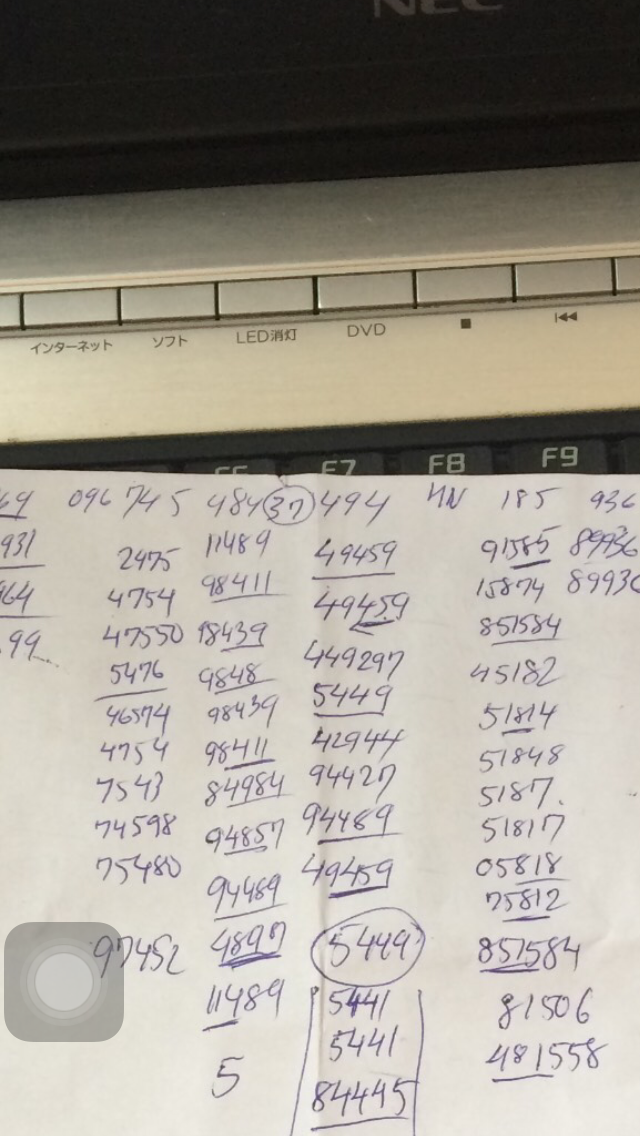 NEC
インターネット ソフト LED消灯 DVD ■ I◀◀
F7 F8 F9
69 096 745 484 37 494 HN 185 936
931 2475 11489 49459 91585 89936
964 4754 98411 49459 15874 89936
99 47550 18439 449297 851584
5476 9848 5449 45182
46574 98439 42944 51814
4754 98411 94427 51848
7543 84984 94489 5187.
74598 94857 49459 51817
75480 94489 5449 05818
97452 4897 5441 75812
11489 5441 851584
5 84445 81506
481558